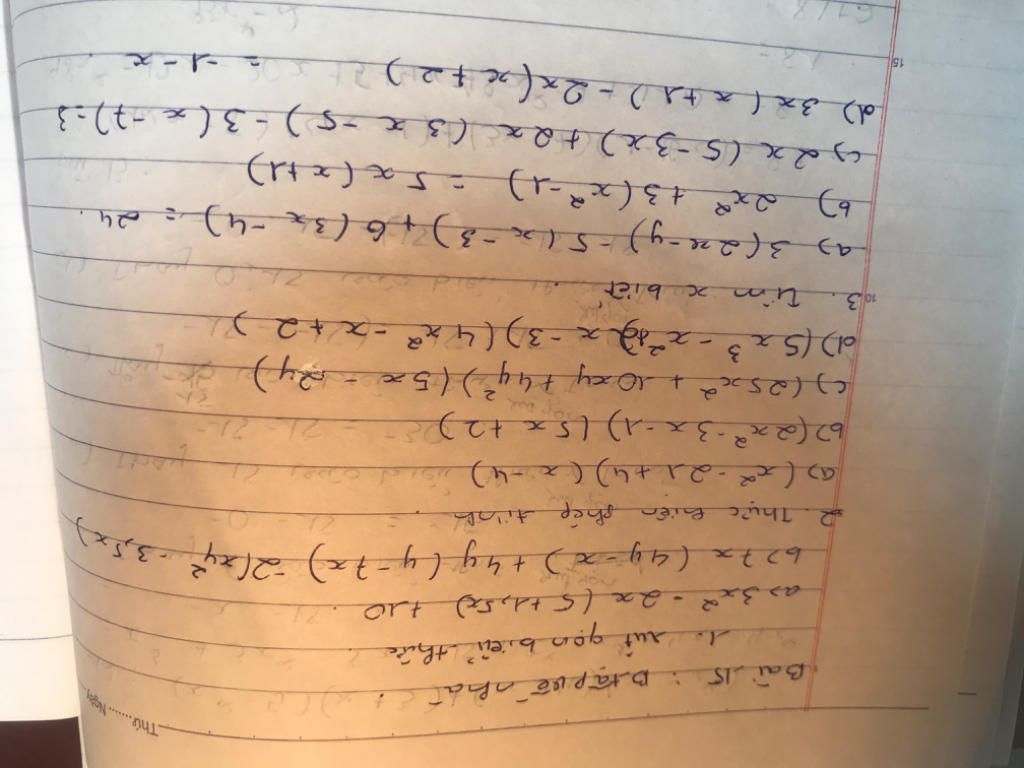 Thứ......... Ngày
Bài 15 : Btập về nhà :
1. rút gọn biểu thức
a) 3x² - 2x (5+1,5x) +10
b) 7x (4y-x) + 4y (y-7x) -2(xy² - 3,5x)
2. Thực hiện phép tính
a) (x² - 21+4) (x-4)
b) (2x² - 3x - 1) (5x+2)
c) (25x² + 10xy + 4y²) (5x - 2y)
d) (5x³ - x² x - 3) (4x² - x + 2)
10
3. tìm x biết
a) 3(2x-y) - 5(x-3) + 6(3x-4) = 24
b) 2x² + 3(x²-1) = 5x(x+1)
c) 2x (5-3x) + 2x (3x-5) - 3(x-7)=3
d) 3x (x+1) - 2x(x+2) = -1-x
15